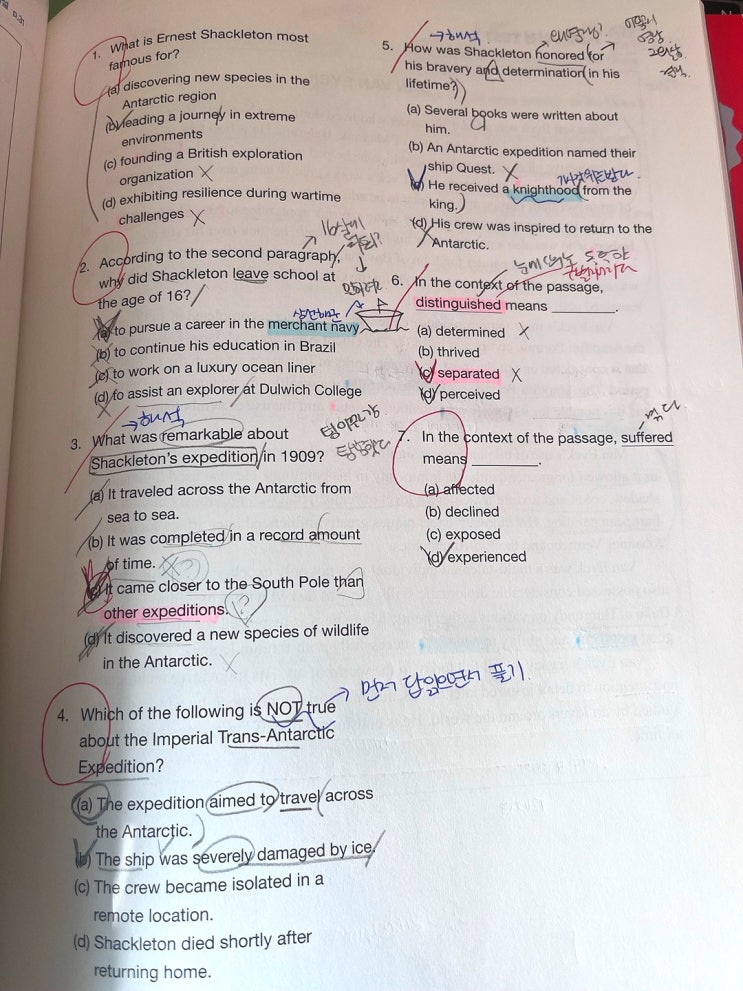 1. What is Ernest Shackleton most
famous for?
(a) discovering new species in the
Antarctic region
(b) leading a journey in extreme
environments
(c) founding a British exploration
organization X
(d) exhibiting resilience during wartime
challenges X
16살에
2. According to the second paragraph,
why did Shackleton leave school at
the age of 16?
(a) to pursue a career in the merchant navy
(b) to continue his education in Brazil
(c) to work on a luxury ocean liner
(d) to assist an explorer at Dulwich College
→ 해석
3. What was remarkable about
Shackleton's expedition in 1909?
(a) It traveled across the Antarctic from
sea to sea.
(b) It was completed in a record amount
of time. X
(c) It came closer to the South Pole than
other expeditions.
(d) It discovered a new species of wildlife
in the Antarctic. X
4. Which of the following is NOT true
→ 먼저 답 읽으면서 풀기.
about the Imperial Trans-Antarctic
Expedition?
(a) The expedition aimed to travel across
the Antarctic.
(b) The ship was severely damaged by ice.
(c) The crew became isolated in a
remote location.
(d) Shackleton died shortly after
returning home.
→ 해석
5. How was Shackleton honored for
his bravery and determination in his
lifetime?
(a) Several books were written about
him.
(b) An Antarctic expedition named their
ship Quest. X
(c) He received a knighthood from the
king.
(d) His crew was inspired to return to the
Antarctic.
6. In the context of the passage,
distinguished means ________.
(a) determined X
(b) thrived
(c) separated X
(d) perceived
7. In the context of the passage, suffered
means ________.
(a) affected
(b) declined
(c) exposed
(d) experienced